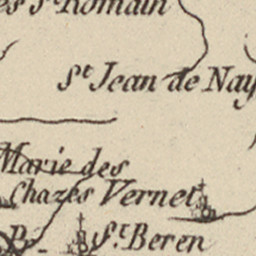 es St Romain
St Jean de Nay
Marie des
Chazes Vernet
P.
St. Beren